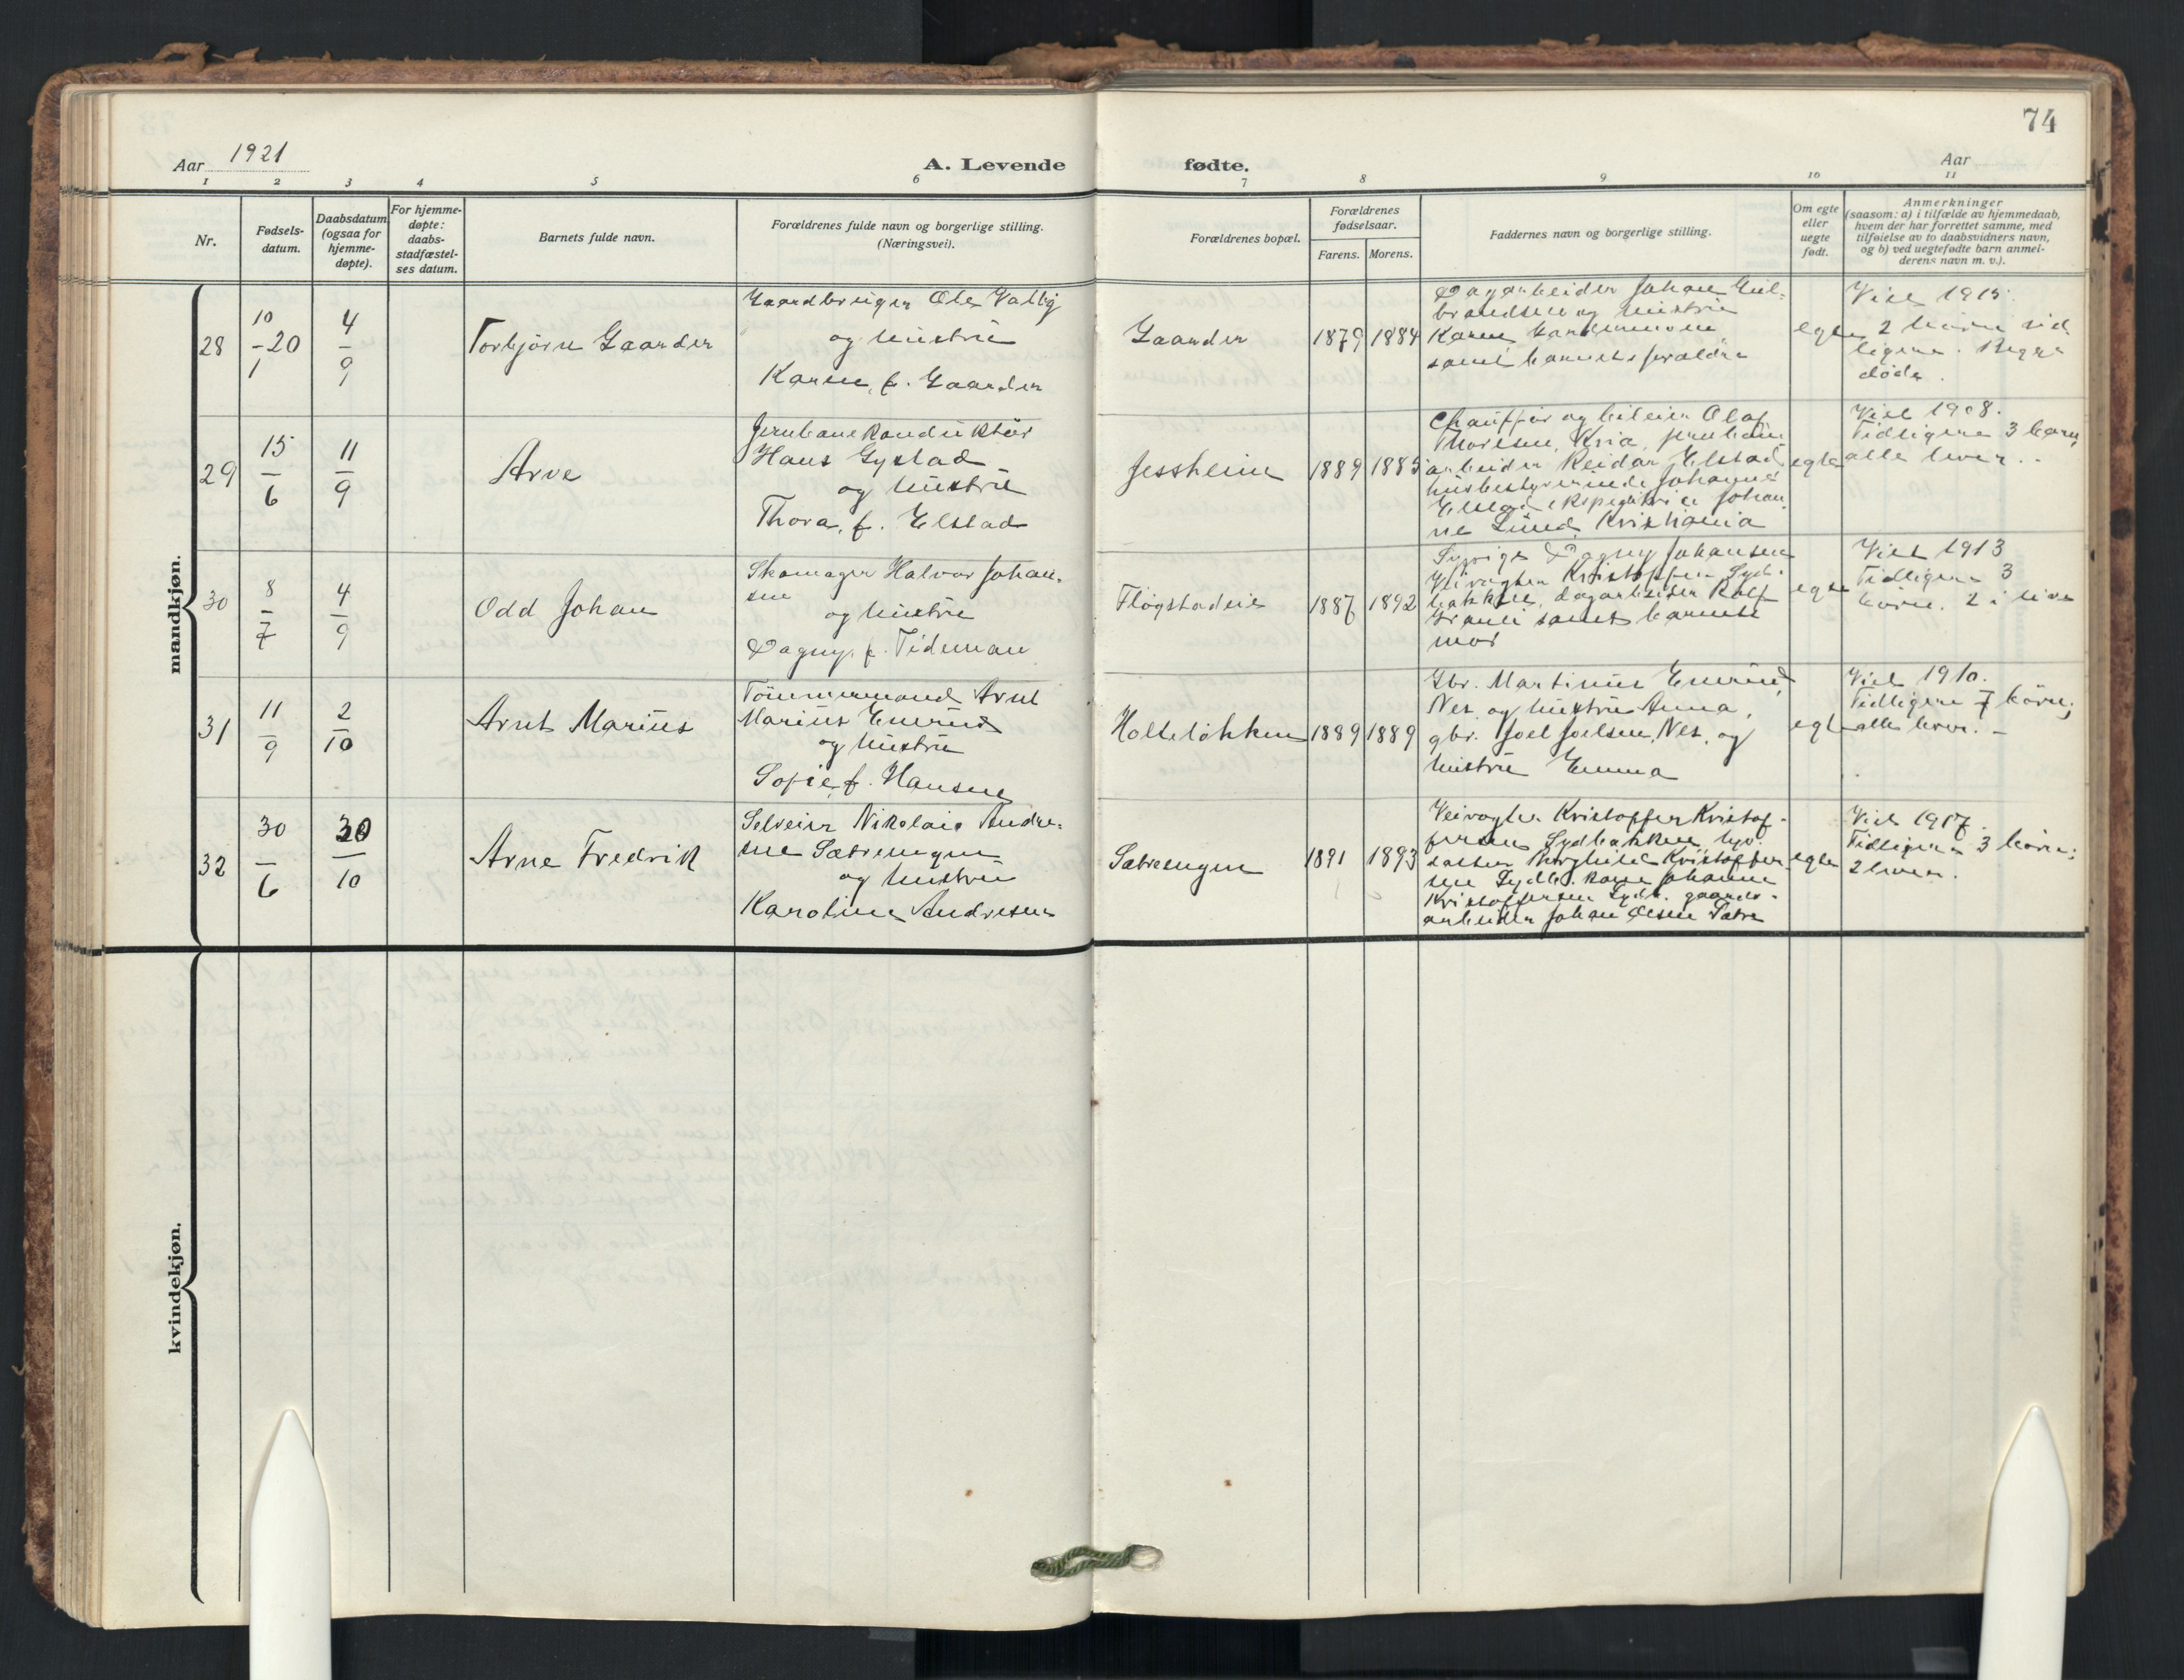 74
Aar 1921
A. Levende
fødte.
Aar
1 2 3 4 5 6
7 8 9 10 11
Nr.
Fødsels-
datum.
Daabsdatum
(ogsaa for
hjemme-
døpte).
For hjemme-
døpte:
daabs-
stadfæstel-
ses datum.
Barnets fulde navn.
Forældrenes fulde navn og borgerlige stilling.
(Næringsvei).
Forældrenes bopæl.
Forældrenes
fødselsaar.
Farens. Morens.
Faddernes navn og borgerlige stilling.
Om egte
eller
uegte
født.
Anmerkninger
(saasom: a) i tilfælde av hjemmedaab,
hvem der har forrettet samme, med
tilføielse av to daabsvidners navn,
og b) ved uegtefødte barn anmel-
derens navn m. v.).
mandkjøn.
28
10
-20
1
4
9
Torbjørn Gaarder
Gaardbruger Ole Valby
og hustru
Karen, f. Gaarder
Gaarder
1879 1884
Dagarbeider Johan Gul-
brandsen og hustru
Karen
samt barnets forældre
egte
Viet 1915.
2 børn tid
ligere. Begge
døde.
29
15
6
11
9
Arve
Jernbanekonduktør
Hans Gystad
og hustru
Thora, f. Elstad
Jessheim
1889 1885
Chauffør og bileier Olaf
Thoresen, Kria, jernbane
arbeider Reidar Elstad
husbestyrerinde Johanne
Elstad ekspeditrice Johan-
ne Lund, Kristiania
egte
Viet 1908.
Tidligere 3 barn,
alle lever.
30
8
7
4
9
Odd Johan
Skomager Halvor Johan-
sen
og hustru
Dagny, f. Tideman
Fløgstadeie
1887 1892
Dagny Johansen
Veivogter Kristoffer Syd-
bakken, dagarbeider Rolf
samt barnets
mor
egte
Viet 1913
Tidligere 3
børn. 2 i live
31
11
9
2
10
Arnt Marius
Tømmermand Arnt
Marius Enerud
og hustru
Sofie, f. Hansen
Holteløkken
1889 1889
Gbr. Martinus Enerud,
Nes og hustru Anna,
gbr. Joel Joelsen, Nes, og
hustru Emma
egte
Viet 1910.
Tidligere 7 børn;
alle lever. -
32
30
6
30
10
Arne Fredrik
Selveier Nikolai Andre-
sen Sætreengen
og hustru
Karoline Andresen
Sætreengen
1891 1893
Veivogter Kristoffer Kristof-
fersen Sydbakken, hus.
datter Borghild Kristoffer-
sen Sydb. kone Johanne
Kristoffersen Sydb. gaards-
arbeider Johan Olsen Sætre
egte
Viet 1917.
Tidligere 3 børn;
2 lever.
kvindekjøn.